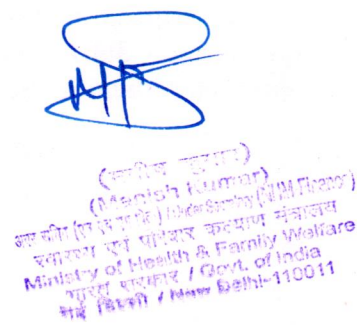 (मनीष कुमार)
(Manish Kumar)
अवर सचिव (एन.एच.एम.-वित्त) / Under Secretary (NHM Finance)
स्वास्थ्य एवं परिवार कल्याण मंत्रालय
Ministry of Health & Family Welfare
भारत सरकार / Govt. of India
नई दिल्ली / New Delhi-110011